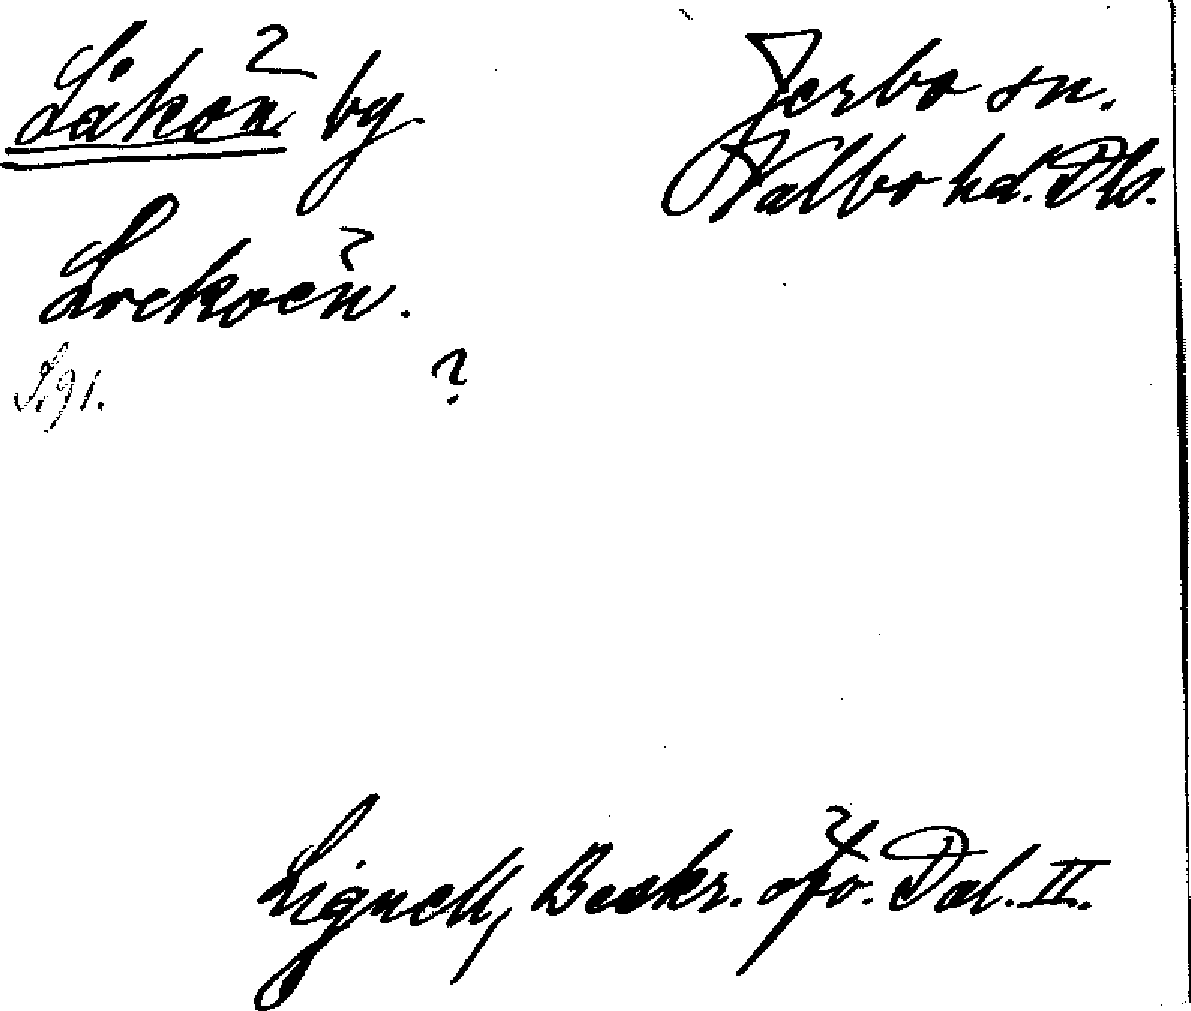 Låkön by
Jerbo sn.
Valbo hd. Dls.
Lockoën.
S. 91.
?
Lignell, Beskr. öfv. Dal. II.